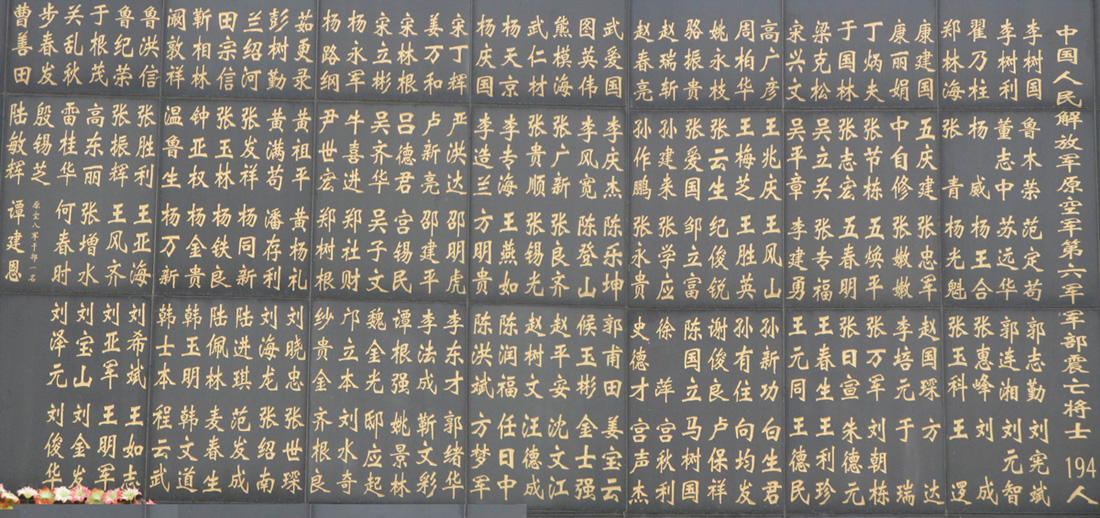 中国人民解放军原空军第六军军部震亡将士194人
李树国 鲁木荣 范定苟 郭志勤 刘宪斌
李树利 董志中 苏远华 郭连湘 刘元智
翟乃柱 杨威 杨王合 张惠峰 刘成
郑林海 张青 杨光魁 张玉科 王逻
康建国 五庆建 张忠军 赵国琛 方达
庞丽娟 中自修 张嫩嫩 李培元 于瑞
丁炳夫 张节栋 五焕平 张万军 刘朝栋
于国林 张志宏 五春明 张日宣 朱德元
梁克松 吴立关 张专福 王春生 王利珍
宋兴文 吴平章 李建勇 王元同 王德民
高广彦 王兆庆 王风山 孙新功 白生君
周柏华 王梅芝 王胜英 孙有住 向均发
姚永枝 张云生 纪俊锐 谢俊良 卢保祥
骆振贵 张爱国 邹立富 陈国立 马树国
赵瑞斩 孙建来 张学应 徐萍 宫秋利
赵春亮 孙作鹏 张永贵 史德才 宫声杰
武爱国 李庆杰 陈乐坤 郭甫田 姜宝云
图英伟 李风宽 陈登山 侯玉彬 金士强
熊模海 张广新 张良奇 赵平安 沈文江
武仁材 张贵顺 张锡光 赵树文 汪德成
杨天京 李专海 王燕如 陈润福 任日中
杨庆国 李造兰 方明贵 陈洪斌 方梦军
宋丁辉 严洪达 邵明虎 李东才 郭绪华
姜万和 卢新亮 邵建平 李法成 靳文彩
宋林根 吕德君 宫锡民 谭根强 姚景林
宋立彬 吴齐华 吴子文 魏金光 邸应起
杨永军 牛喜进 郑社财 邝立本 刘水奇
杨路纲 尹世宏 郑树根 纱贵金 齐根良
茹更录 黄祖平 黄杨礼 刘晓忠 张世琛
彭树勤 黄满苟 潘存利 刘海龙 张绍南
兰绍河 张发祥 杨同新 陆进琪 范发成
田宗信 张玉林 杨铁良 陆佩林 麦春生
靳相林 钟亚权 杨金贵 韩玉明 韩文道
阚敦祥 温鲁生 杨万新 韩士本 程云武
鲁洪信 张胜利 王亚海 刘希斌 王如志
鲁纪荣 张振辉 王风齐 刘亚军 王明军
于根茂 高东丽 张增水 刘宝山 刘金发
关乱秋 雷桂华 何春时 刘泽元 刘俊华
步春发 殷锡芝 原空八军干部一名
曹善田 陆敏辉 谭建恩